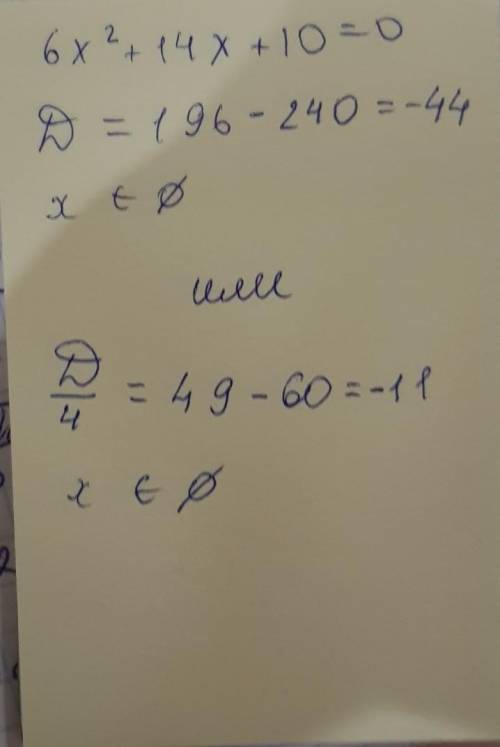 6x² + 14x + 10 = 0
D = 196 - 240 = -44
x ∈ ∅
или
D/4 = 49 - 60 = -11
x ∈ ∅